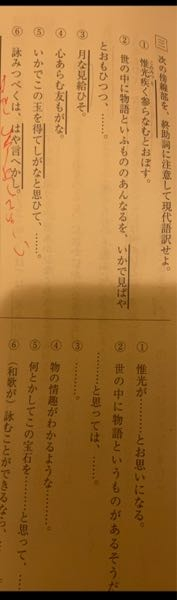 三 次の傍線部を、終助詞に注意して現代語訳せよ。
① 惟光疾く参らなむとおぼす。
② 世の中に物語といふもののあんなるを、いかで見ばや
とおもひつつ、……。
③ 月な見給ひそ。
④ 心あらむ友もがな。
⑤ いかでこの玉を得てしがなと思ひて、……。
⑥ 詠みつべくは、はや言へかし。
① 惟光が………とお思いになる。
② 世の中に物語というものがあるそうだ
………と思っては、………。
③ ………。
④ 物の情趣がわかるような………。
⑤ 何とかしてこの宝石を………と思って、…
⑥ (和歌が)詠むことができるなら、